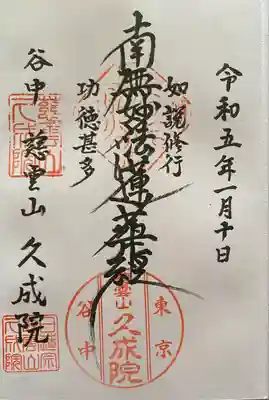 令和五年一月十日
如説修行
南無妙法蓮華経
功徳甚多
谷中 慈雲山 久成院
東京
慈雲山
久成院
谷中